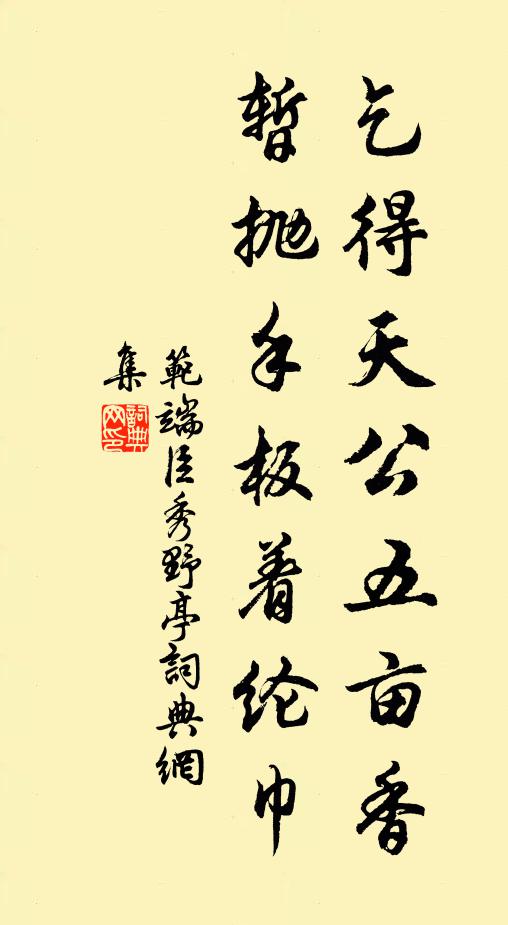 乞得天公五亩香
暂抛手板着纶巾
範端臣秀野亭詞典網
集
詞典网印